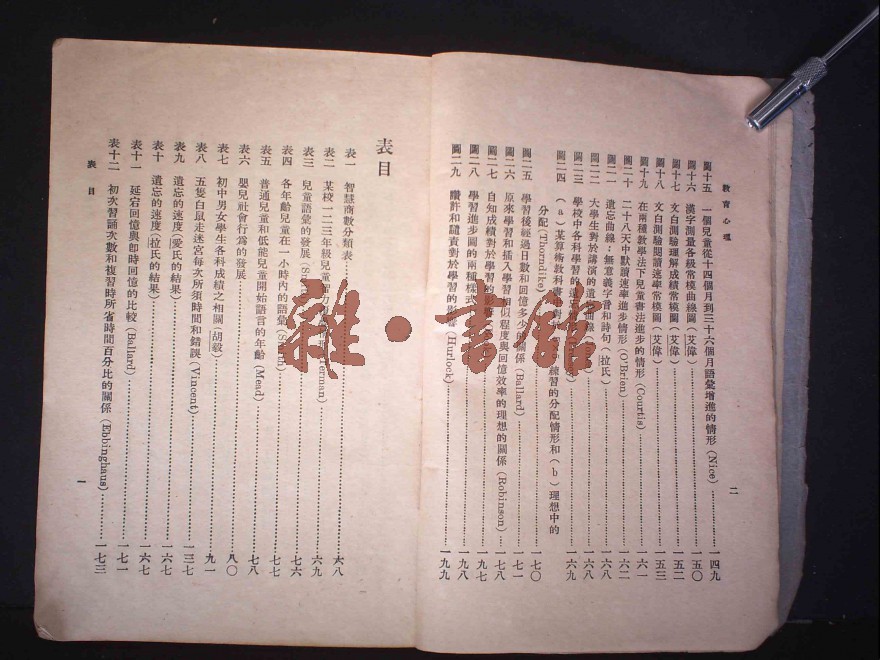 教育心理
二
圖十五 一個兒童從十四個月到三十六個月語彙增進的情形(Nice)……一四九
圖十六 漢字測量各級常模曲線圖(艾偉)……一五〇
圖十七 文白測驗理解成績常模圖(艾偉)……一五二
圖十八 文白測驗閱讀速率常模圖(艾偉)……一五三
圖十九 在兩種敎學法下兒童書法進步的情形(Courtis)……一六一
圖二十 二十八天中默讀速率進步情形(O'Brien)……一六二
圖二一 遺忘曲線:無意義字音和詩句(拉氏)……一六八
圖二二 大學生對於講演的遺忘曲線……一六八
圖二三 學校中各科學習的遺忘……一六九
圖二四 (a)某算術敎科書中對於練習的分配情形和(b)理想中的
分配(Thorndike)……一七〇
圖二五 學習後經過日數和回憶多少的關係(Ballard)……一七一
圖二六 原來學習和插入學習相似程度與回憶效率的理想的關係(Robinson)……一七八
圖二七 自知成績對於學習的影響……一九七
圖二八 學習進步圖的兩種樣式……一九八
圖二九 讚許和譴責對於學習的影響(Hurlock)……一九九
表目
表一 智慧商數分類表……六八
表二 某校一二三年級兒童智力(Terman)……六九
表三 兒童語彙的發展……七六
表四 各年齡兒童在一小時內的語彙……七七
表五 普通兒童和低能兒童開始語言的年齡(Mead)……七八
表六 嬰兒社會行為的發展……八〇
表七 初中男女學生各科成績之相關(胡毅)……九一
表八 五隻白鼠走迷宮每次所須時間和錯誤(Vincent)……一三七
表九 遺忘的速度(愛氏的結果)……一六七
表十 遺忘的速度(拉氏的結果)……一六七
表十一 延宕回憶與卽時回憶的比較(Ballard)……一七一
表十二 初次習誦次數和複習時所省時間百分比的關係(Ebbinghaus)……一七三
表目
一
雜·書館